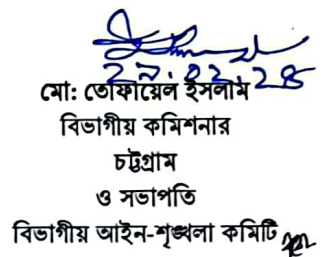 ২৯.০১.২৫
মো: তোফায়েল ইসলাম
বিভাগীয় কমিশনার
চট্টগ্রাম
ও সভাপতি
বিভাগীয় আইন-শৃঙ্খলা কমিটি